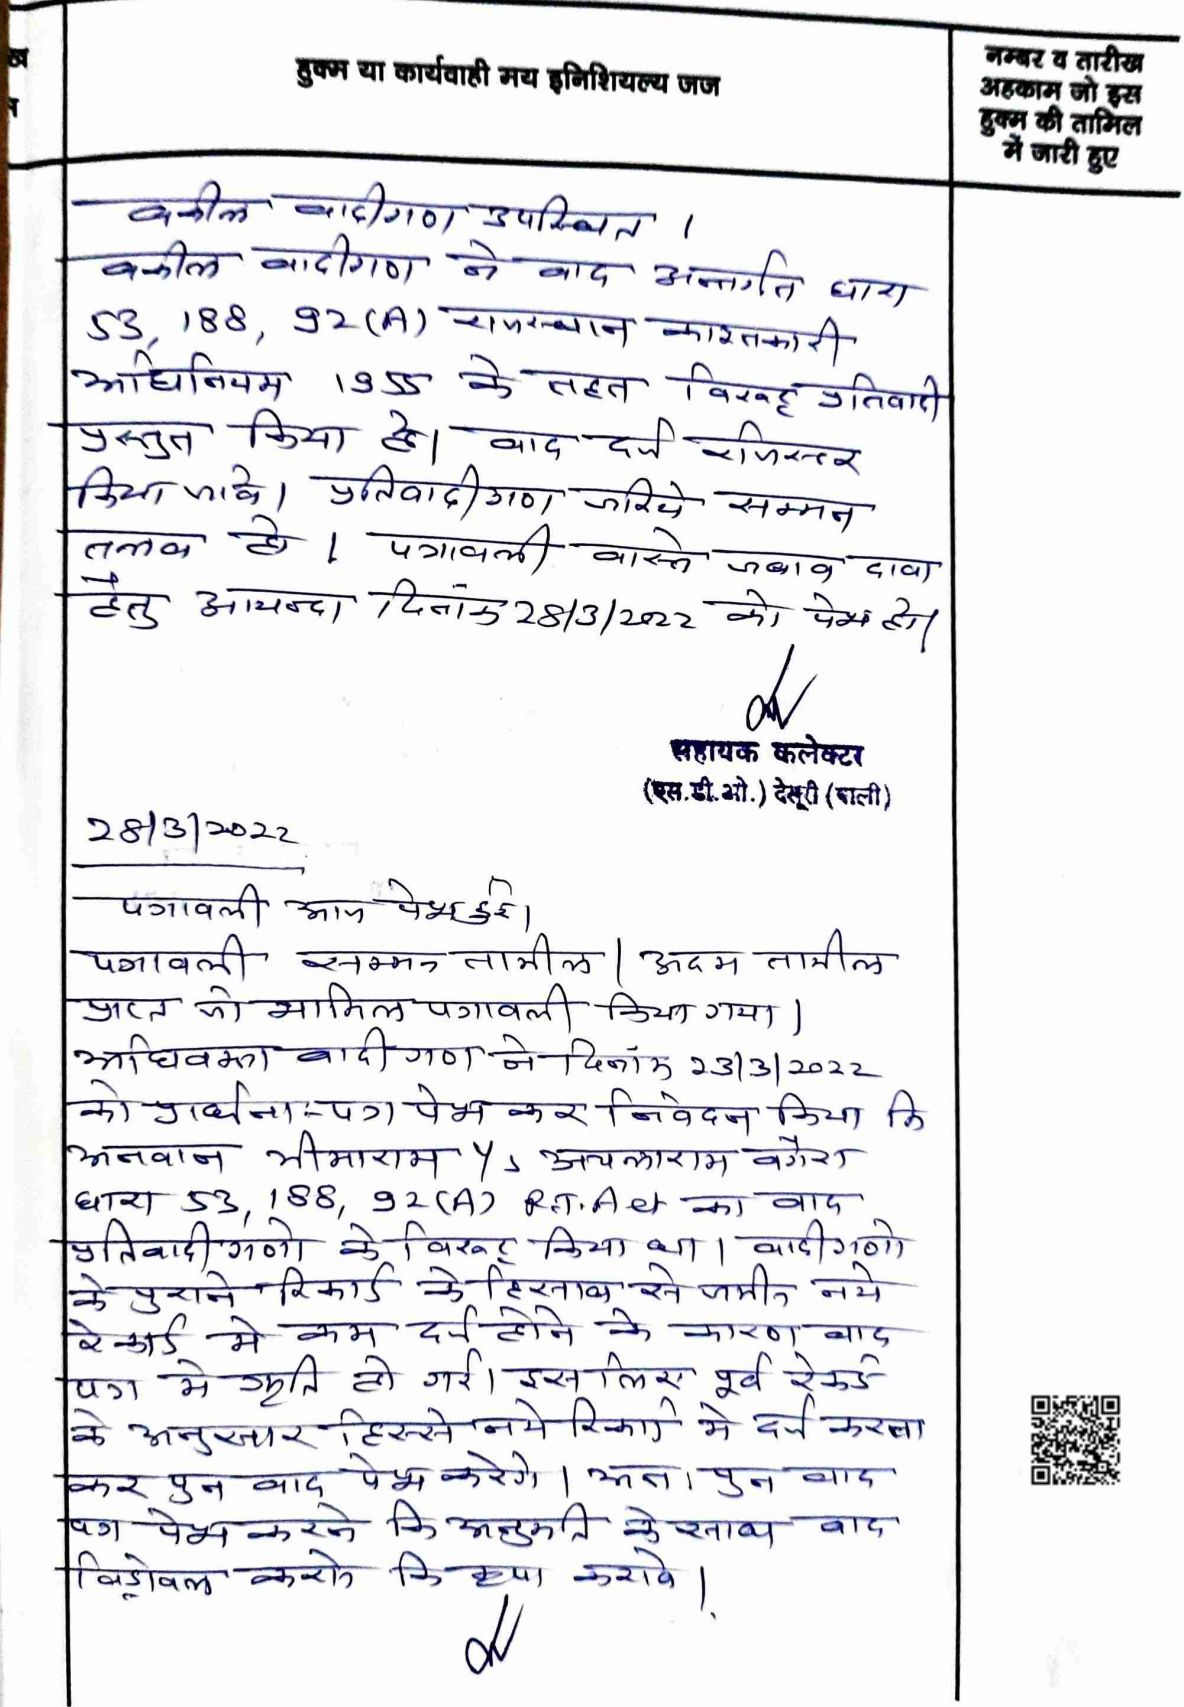 ख
त
हुक्म या कार्यवाही मय इनिशियल्य जज
नम्बर व तारीख
अहकाम जो इस
हुक्म की तामिल
में जारी हुए
वकील वादीगण उपस्थित ।
वकील वादीगण ने वाद अन्तर्गत धारा
53, 188, 92(A) राजस्थान काश्तकारी
अधिनियम 1955 के तहत विरूद्ध प्रतिवादी
प्रस्तुत किया है। वाद दर्ज रजिस्टर
किया जावे। प्रतिवादीगण जरिये सम्मन
तलब हो । पत्रावली वास्ते जबाव दावा
हेतु आयन्दा दिनांक 28/3/2022 को पेश हो।
सहायक कलेक्टर
(एस.डी.ओ.) देसूरी (पाली)
28/3/2022
पत्रावली आज पेश हुई।
पत्रावली सम्मन तामील / अदम तामील
प्राप्त जो शामिल पत्रावली किया गया।
अधिवक्ता वादीगण ने दिनांक 23/3/2022
को प्रार्थना-पत्र पेश कर निवेदन किया कि
अनवान भीमाराम V/s अचलाराम वगैरा
धारा 53, 188, 92(A) R.T. Act का वाद
प्रतिवादीगणो के विरूद्ध किया था। वादीगणो
के पुराने रिकार्ड के हिसाब से जमीन नये
रेकार्ड मे कम दर्ज होने के कारण वाद
पत्र मे त्रुति हो गई। इसलिए पूर्व रेकर्ड
के अनुसार हिस्से नये रिकार्ड मे दर्ज करवा
कर पुन वाद पेश करेगे। अत। पुन वाद
पत्र पेश करने कि अनुमति के साथ वाद
विड्रोवल करने कि कृपा करावे।